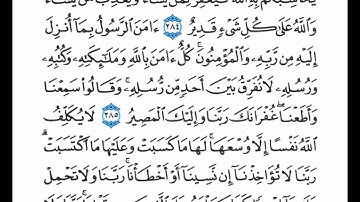 وَاللَّهُ عَلَىٰ كُلِّ شَيْءٍ قَدِيرٌ ٢٨٤ ءَامَنَ الرَّسُولُ بِمَا أُنزِلَ
إِلَيْهِ مِن رَّبِّهِ وَالْمُؤْمِنُونَ كُلٌّ ءَامَنَ بِاللَّهِ وَمَلَٰٓئِكَتِهِ وَكُتُبِهِ
وَرُسُلِهِ لَا نُفَرِّقُ بَيْنَ أَحَدٍ مِّن رُّسُلِهِ وَقَالُوا سَمِعْنَا
وَأَطَعْنَا غُفْرَانَكَ رَبَّنَا وَإِلَيْكَ الْمَصِيرُ ٢٨٥ لَا يُكَلِّفُ
اللَّهُ نَفْسًا إِلَّا وُسْعَهَا لَهَا مَا كَسَبَتْ وَعَلَيْهَا مَا اكْتَسَبَتْ
رَبَّنَا لَا تُؤَاخِذْنَا إِن نَّسِينَا أَوْ أَخْطَأْنَا رَبَّنَا وَلَا تَحْمِلْ